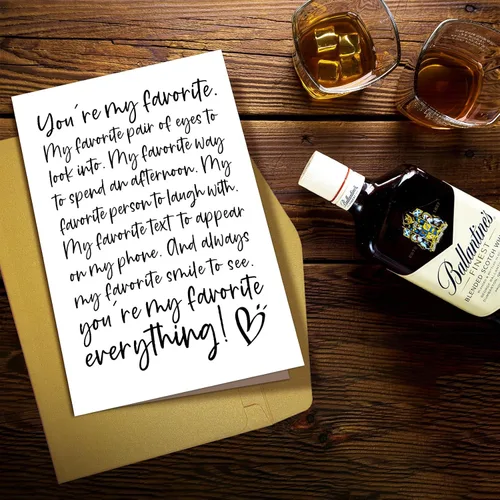 You're my favorite.
My favorite pair of eyes to
look into. My favorite way
to spend an afternoon. My
favorite person to laugh with.
My favorite text to appear
on my phone. And always
my favorite smile to see.
you're my favorite
everything!
Ballantine's
FINEST
BLENDED SCOTCH